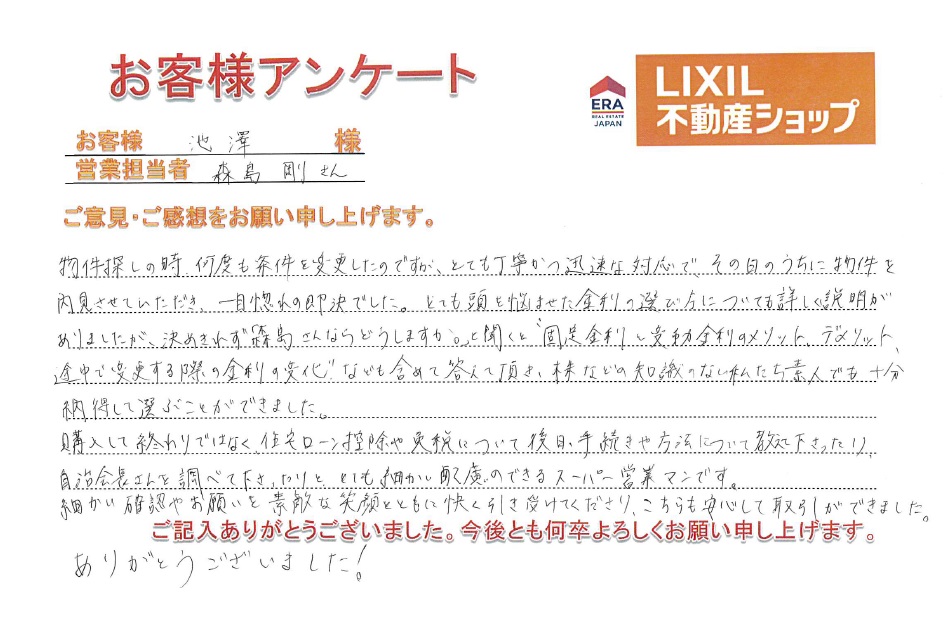 お客様アンケート
ERA
REAL ESTATE
JAPAN
LIXIL
不動産ショップ
お客様 池澤 様
営業担当者 森島 剛さん
ご意見・ご感想をお願い申し上げます。
物件探しの時、何度も条件を変更したのですが、とても丁寧かつ迅速な対応で、その日のうちに物件を
内見させていただき、一目惚れの即決でした。とても頭を悩ませた金利の選び方についても詳しく説明が
ありましたが、決めきれず“森島さんならどうしますか。”と聞くと“固定金利と変動金利のメリット、デメリット、
途中で変更する際の金利の変化”なども含めて答えて頂き、株などの知識のない私たち素人でも十分
納得して選ぶことができました。
購入して終わりではなく、住宅ローン控除や免税について後日、手続きや方法について教えて下さったり、
自治会長さんを調べて下さったりと、とても細かい配慮のできるスーパー営業マンです。
細かい確認やお願いを素敵な笑顔とともに快く引き受けてくださり、こちらも安心して取引ができました。
ご記入ありがとうございました。今後とも何卒よろしくお願い申し上げます。
ありがとうございました!